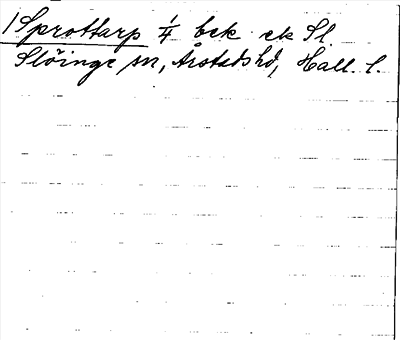 1 Sprottarp 1/4 bek ek Sl.
Slöinge sn, Årstads hd, Hall. l.